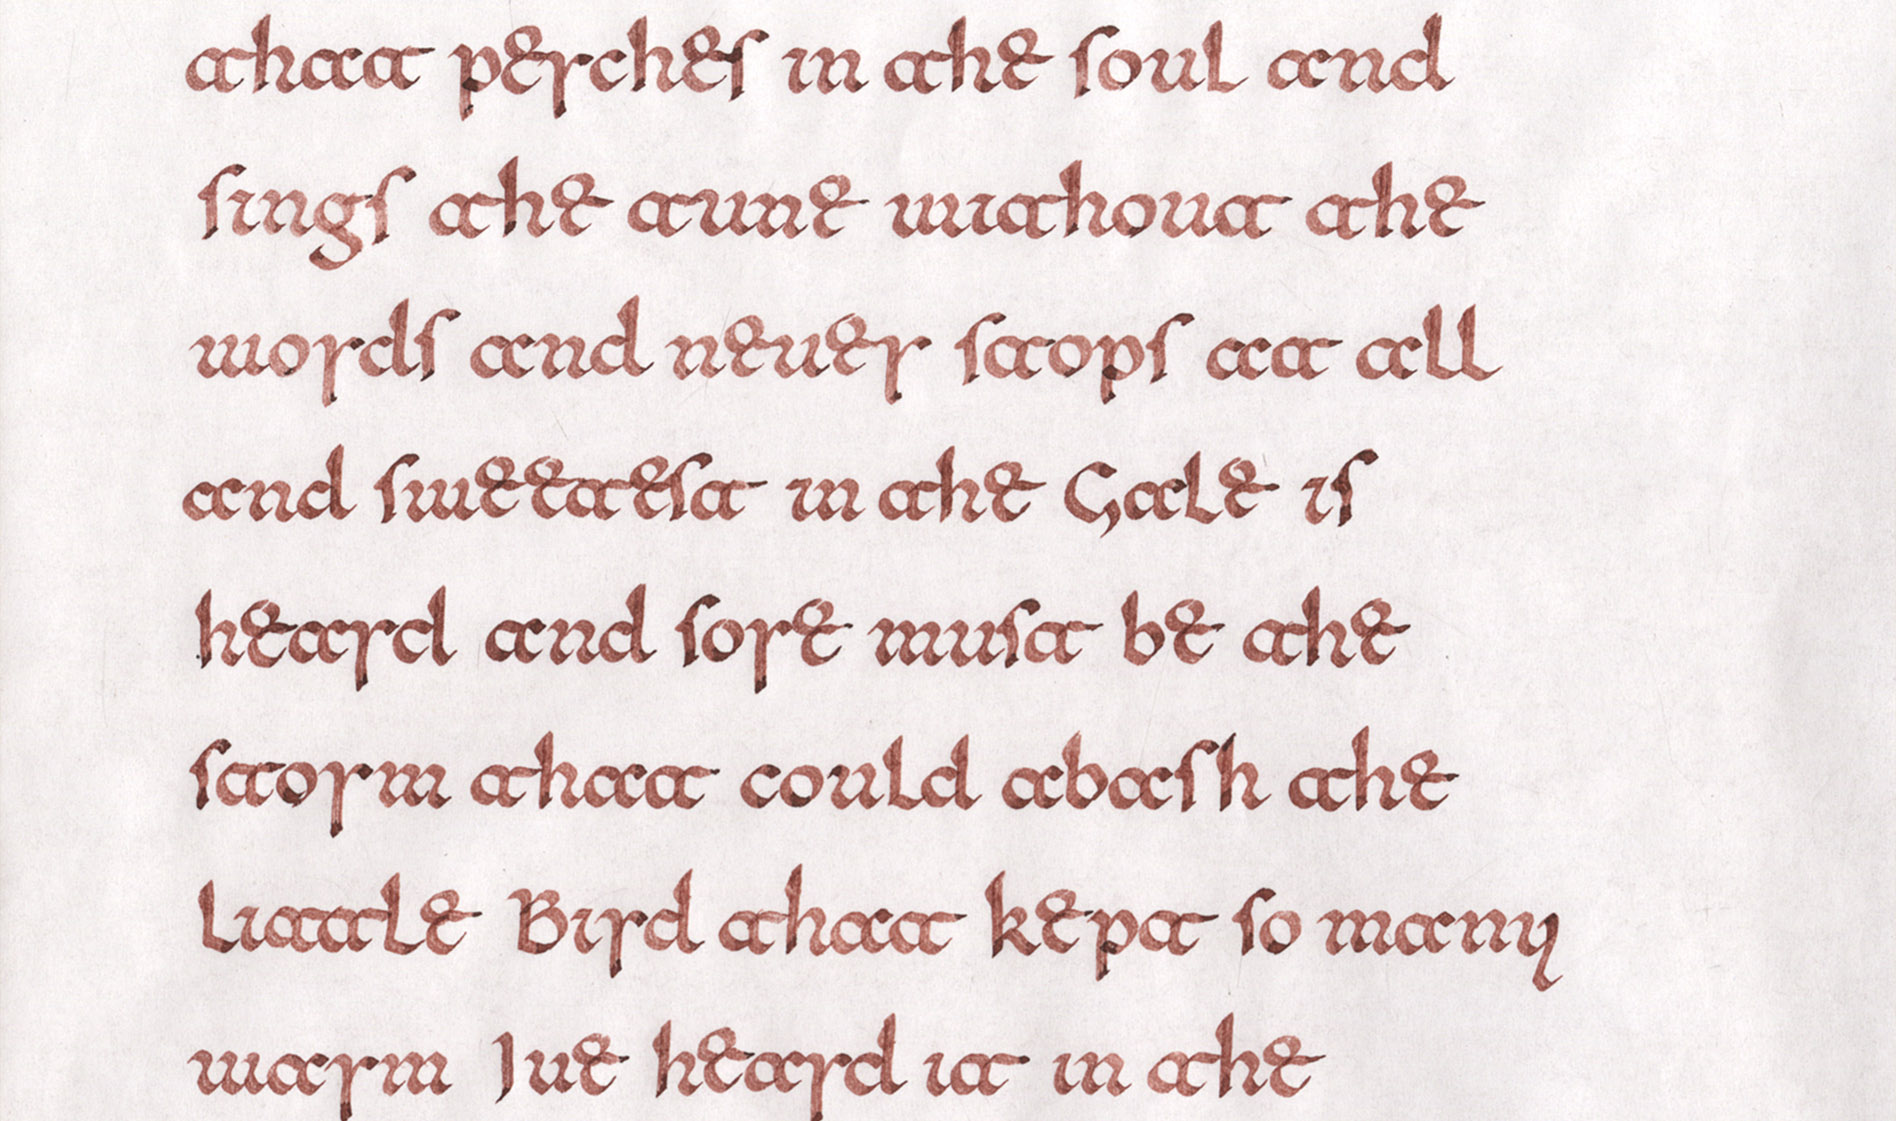 that perches in the soul and
sings the tune without the
words and never stops at all
and sweetest in the Gale is
heard and sore must be the
storm that could abash the
little Bird that kept so many
warm Ive heard it in the